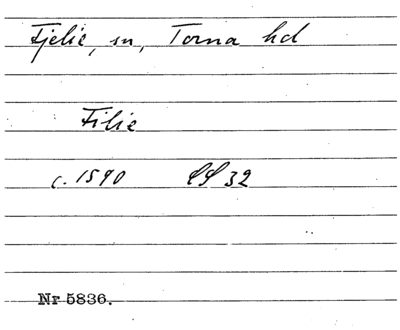 Fjelie, sn, Torna hd
Filie
c. 1590 LL 32
Nr 5836.